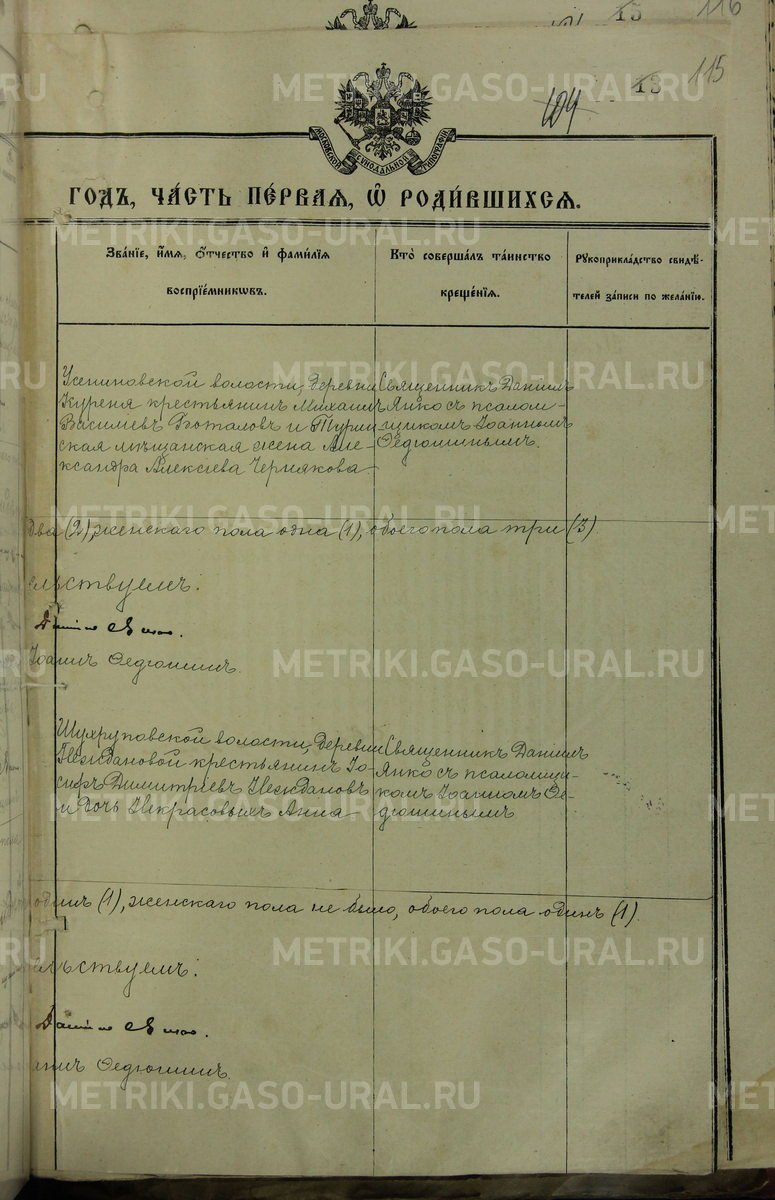 15 116
115
13
104
МОСКОВСКОЙ СѴНОДАЛЬНОЙ ТИПОГРАФІИ
ГОДЪ, ЧА́СТЬ ПЕ́РВАѦ, Ѽ РОДИ́ВШИХСѦ.
Зва́нїе, и҆́мѧ, ѻ҆́тчество и҆ фами́лїѧ воспрїе́мникѡвъ.
Кто̀ соверша́лъ та́инство креще́нїѧ.
Рꙋкоприкла́дство свидѣ́телей за́писи по жела́нїю.
Усениновской волости, деревни
Куреня крестьянинъ Михаилъ
Васильевъ Фоталовъ и Турин
ская мѣщанская жена Але-
ксандра Алексѣева Чернякова
Священникъ Даніилъ
Янко съ псалом-
щикомъ Іоанномъ
Федюшинымъ.
два (2), женскаго пола одна (1), обоего пола три (3)
ельствуемъ:
Даніилъ Янко.
Іоаннъ Федюшинъ.
Шухруповской волости, деревни
Гвоздановой крестьянинъ Іо-
сифъ Димитріевъ
и дочь Некрасовыхъ Анна
Священникъ Даніилъ
Янко съ псаломщи-
комъ Іоанномъ Фе-
дюшинымъ
одинъ (1), женскаго пола не было, обоего пола одинъ (1).
ельствуемъ:
Даніилъ Янко.
аннъ Федюшинъ.
METRIKI.GASO-URAL.RU